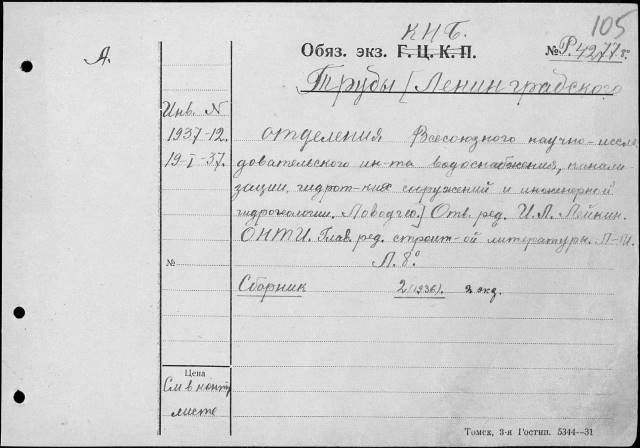 105
КНБ.
А.
Обяз. экз. Г. Ц. К. П. № Р.4277г
Труды [Ленинградского
Инв. N
1937-12.
19-I-37.
отделения Всесоюзного научно-иссле
довательского ин-та водоснабжения, канали
зации, гидрот-ких сооружений и инженерной
гидрогеологии. Ловодгео.] Отв. ред. И.Л. Лейкин.
ОНТИ. Глав. ред. строит-ой литературы. Л-М.
№ Л. 8°
Сборник 2(1936). 2 экз.
Цена
См в контр
листе
Томск, 3-я Гостип. 5344—31